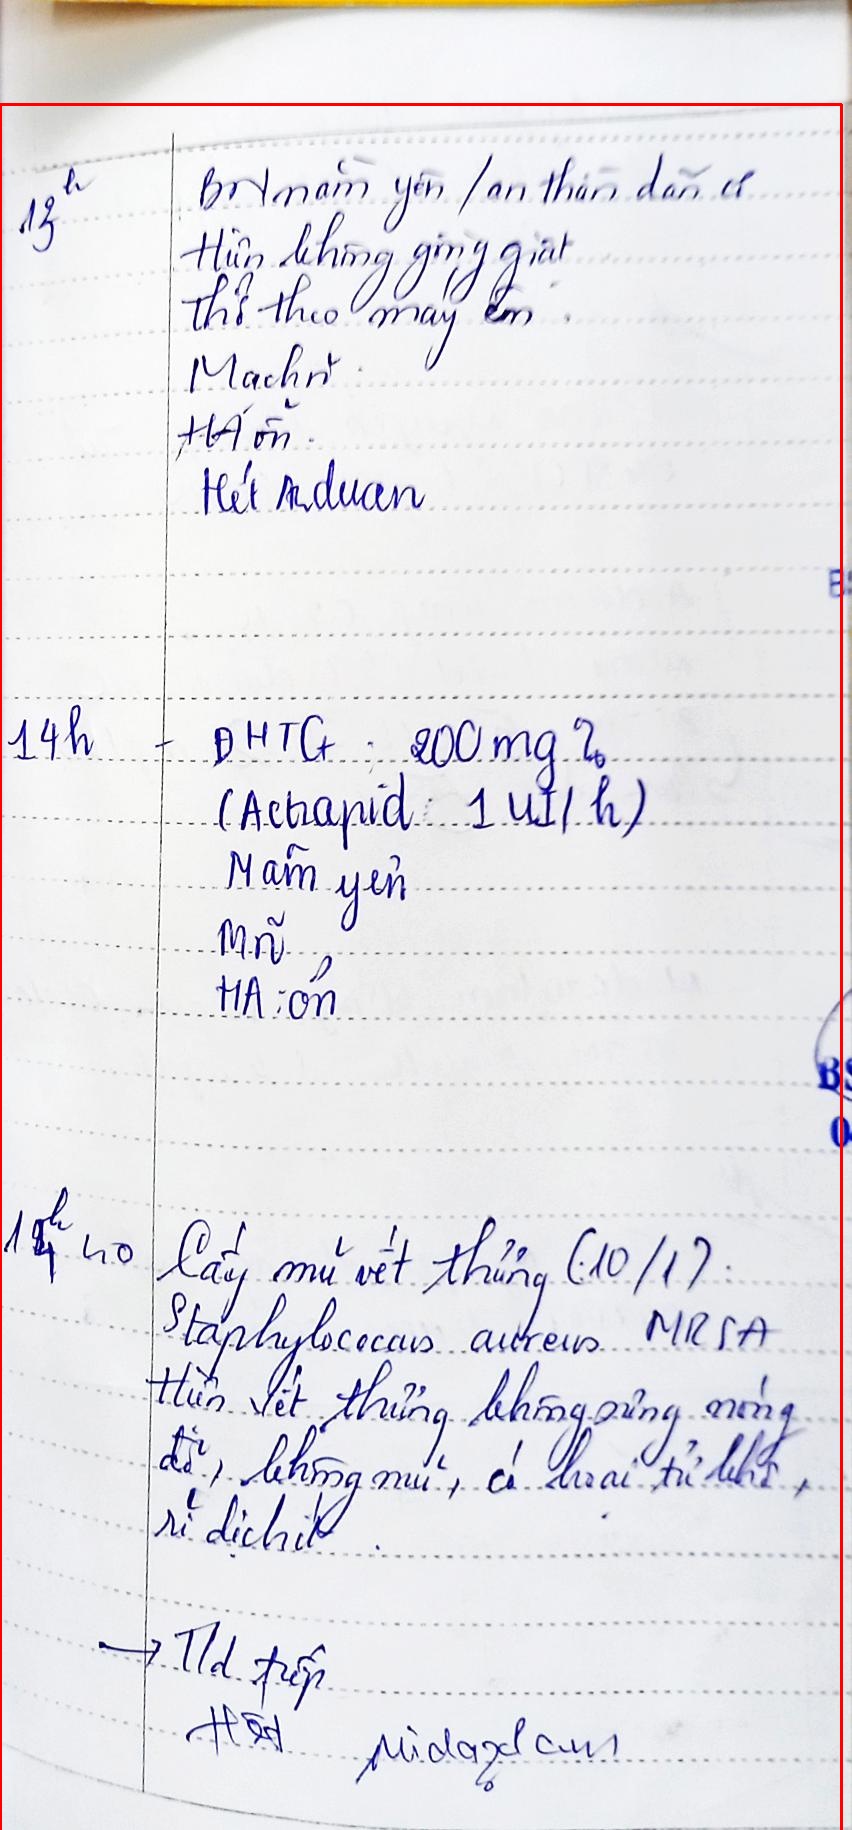 13h BN nằm yên / an thần dãn cơ
Hiện không gồng giật
Thở theo máy êm.
Mạch rõ
HA ổn.
Hết Arduan
BS
14h - ĐHTG: 200mg%
(Actrapid: 1UI/h)
Nằm yên
M rõ
HA: ổn
BS
0
14h40 Cấy mủ vết thương (10/1):
Staphylococcus aureus MRSA
Hiện vết thương không sưng nóng
đỏ, không mủ, có hoại tử khô,
rỉ dịch ít.
→ T/d tiếp
Midazolam